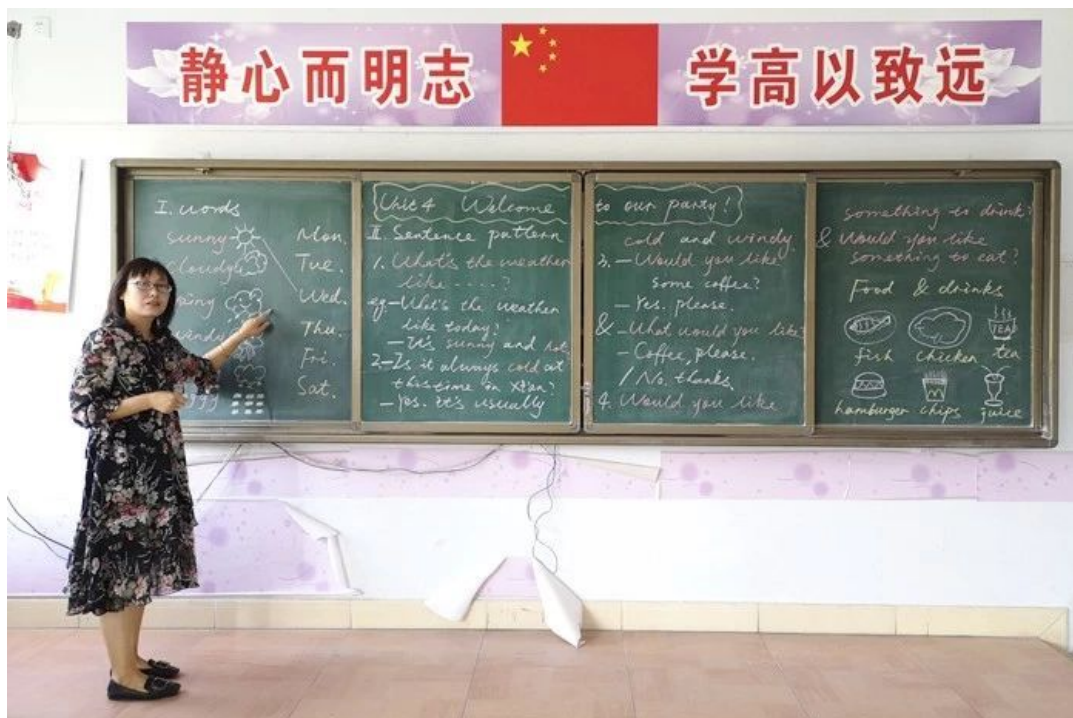 静心而明志 学高以致远
I. words
sunny Mon.
cloudy Tue.
Wed.
windy Thu.
Fri.
Sat.
Unit 4 Welcome to our party!
II. Sentence pattern
1. What's the weather
like ....?
eg.-What's the weather
like today?
-It's sunny and hot
2-Is it always cold at
this time in Xi'an?
-Yes. It's usually
cold and windy
3. -Would you like
some coffee?
-Yes. please.
& -What would you like?
-Coffee, please.
/ No. thanks
4. Would you like
something to drink?
& Would you like
something to eat?
Food & drinks
TEA
fish chicken tea
M
hamburger chips juice